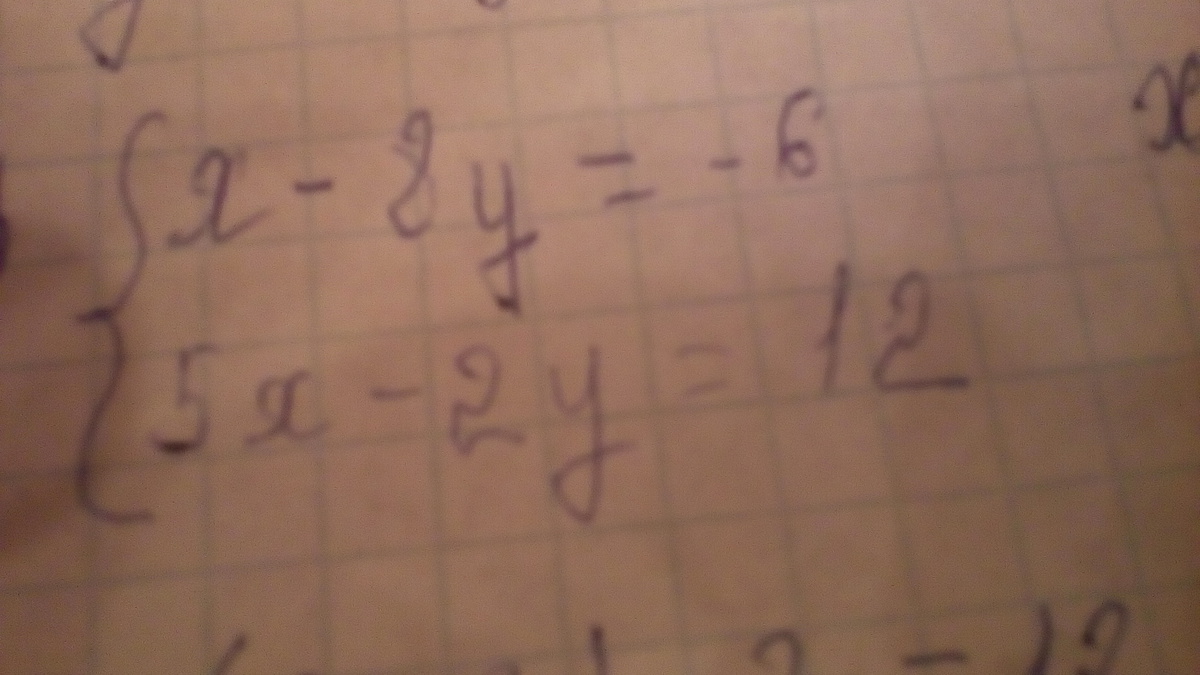 x - 8y = -6
x
5x - 2y = 12